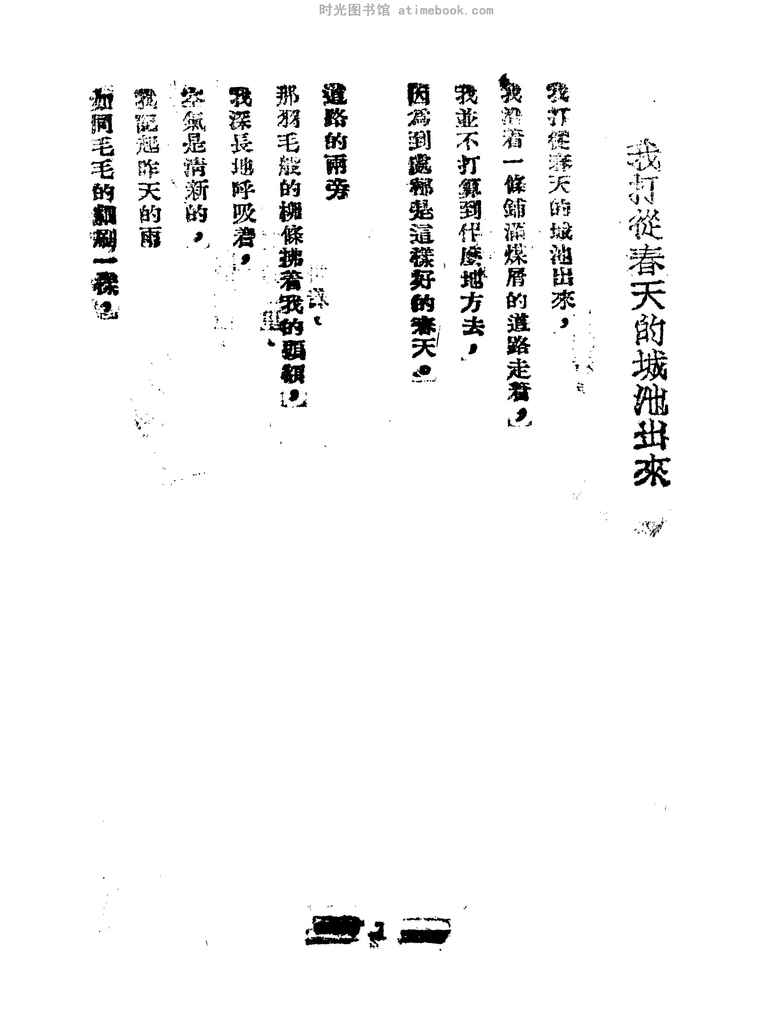 时光图书馆 atimebook.com
我打從春天的城池出來
我打從春天的城池出來，
我沿着一條鋪滿煤屑的道路走着，
我並不打算到什麼地方去，
因爲到處都是這樣好的春天。
道路的兩旁
那羽毛般的柳條拂着我的頭額，
我深長地呼吸着，
空氣是清新的，
我記起昨天的雨
如同毛毛的細刷一樣，
1